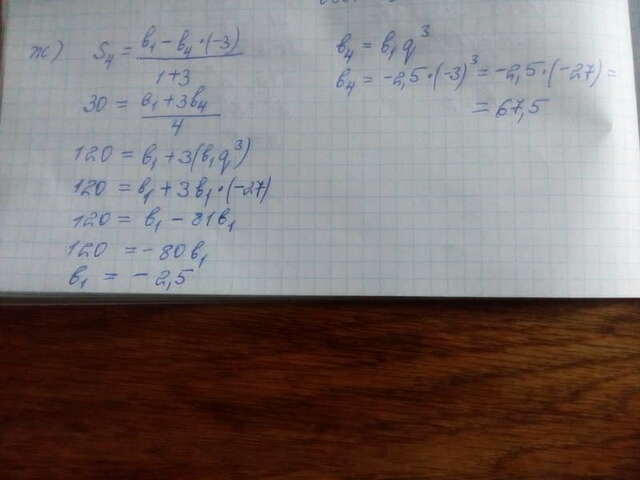 ж) S₄ = (b₁ - b₄·(-3))/(1+3)
30 = (b₁ + 3b₄)/4
120 = b₁ + 3(b₁q³)
120 = b₁ + 3b₁·(-27)
120 = b₁ - 81b₁
120 = -80b₁
b₁ = -2,5
b₄ = b₁q³
b₄ = -2,5·(-3)³ = -2,5·(-27) =
= 67,5